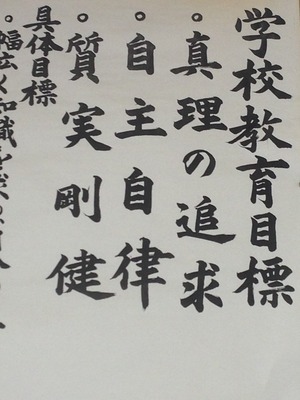 学校教育目標
・真理の追求
・自主自律
・質実剛健
具体目標
・幅広く知識を求め